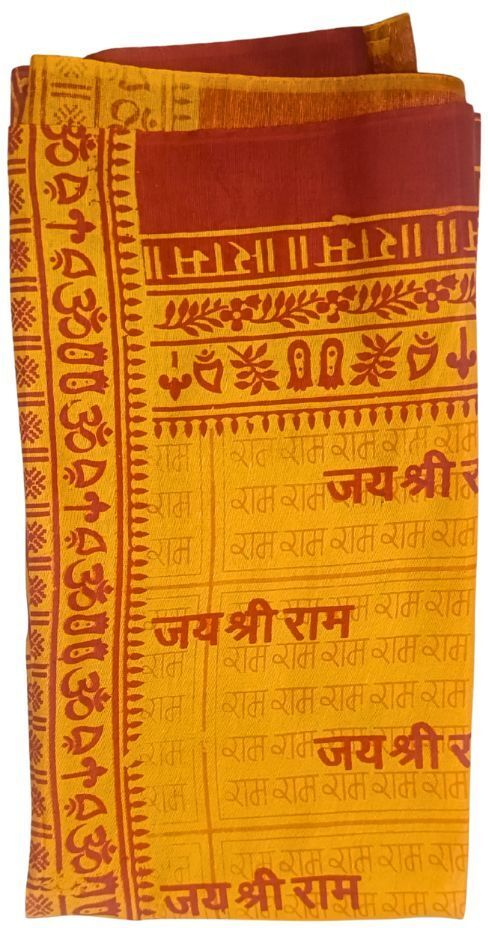 ॥राम॥राम॥
राम राम राम राम राम राम
राम राम राम जय श्री
राम राम राम राम राम राम
जय श्री राम राम राम राम
राम राम राम राम राम राम
राम राम राम राम राम राम
राम राम राम जय श्री
राम राम राम राम राम राम
जय श्री राम